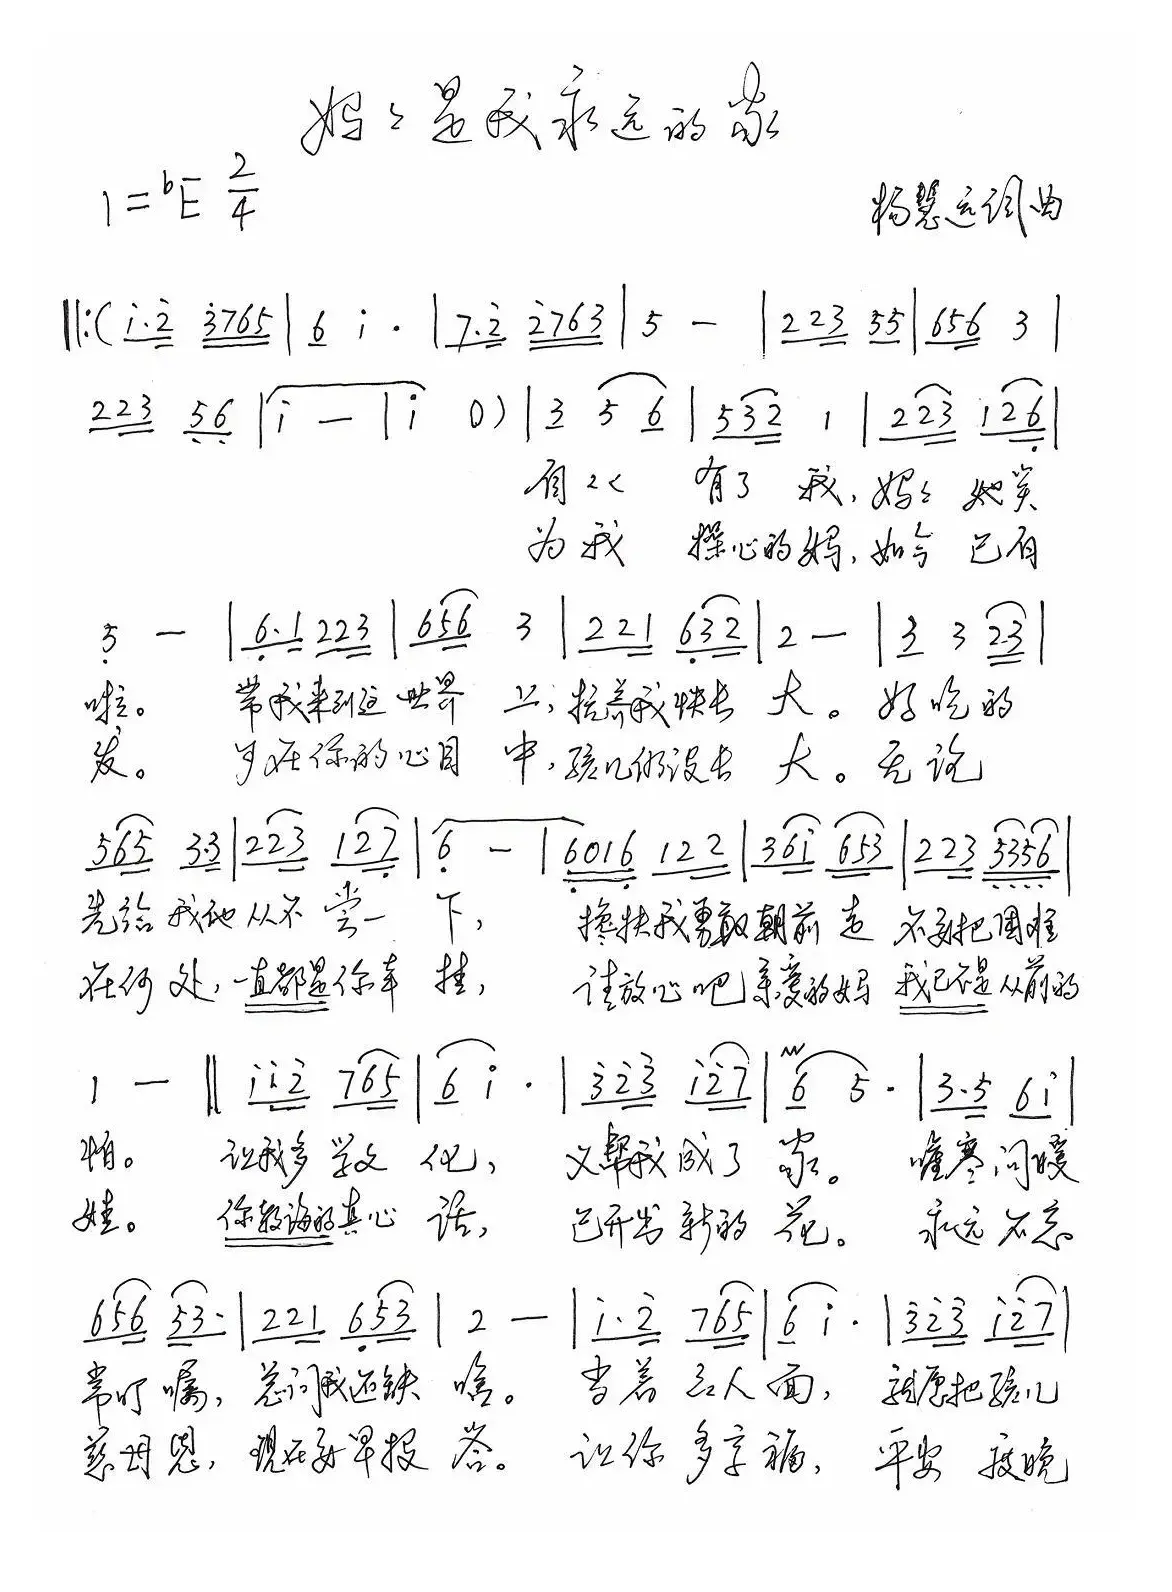 妈妈是我永远的家
1=♭E 2/4
杨慧远词曲
‖:( i·2 3765 | 6 i · | 7·2 2763 | 5 - | 223 55 | 656 3 |
223 56 | i - | i 0) | 3 5 6 | 532 1 | 223 126 |
自从 有了 我, 妈妈 她笑
为我 操心的妈, 如今 已白
5 - | 6·1 223 | 656 3 | 221 632 | 2 - | 3 3 23 |
啦。 带我来到这世界 上, 抚养我快长 大。 好吃的
发。 岁在你的心目 中, 孩儿仍没长 大。 无论
565 33 | 223 127 | 6 - | 6016 122 | 36i 653 | 223 5356 |
先给 我她从不 尝一 下, 搀扶我勇敢朝前 走 不要把困难
在何 处, 一直都是你牵 挂, 请放心吧亲爱的妈 我已不是从前的
1 - ‖ ii2 765 | 6 i · | 323 i27 | 6 5 · | 3·5 6i |
怕。 让我多 学文 化, 又帮我成了 家。 嘘寒问暖
娃。 你教诲的真心 话, 已开出新的 花。 永远 不忘
656 53· | 221 653 | 2 - | i·2 765 | 6 i · | 323 i27 |
常叮嘱, 总问我还缺 啥。 当着 众人 面, 就愿把孩儿
慈母恩, 现在要早报 答。 让你 多享 福, 平安 度晚